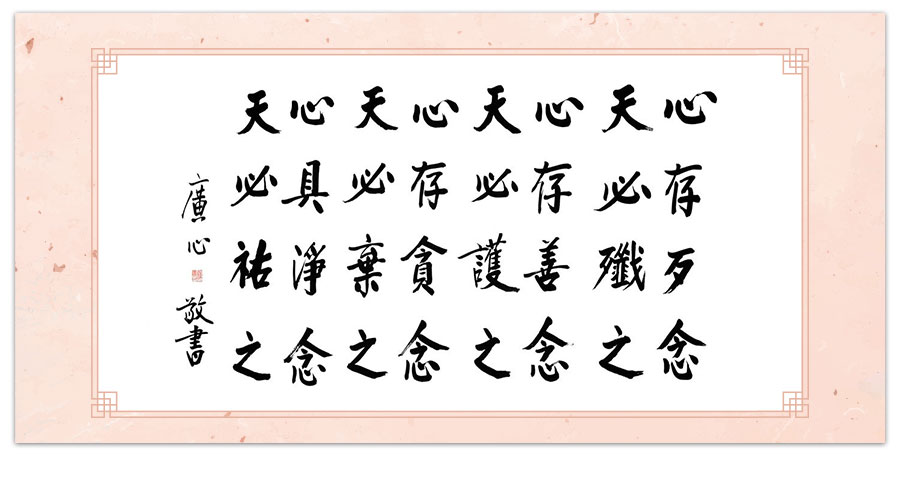 心存歹念
天必殲之
心存善念
天必護之
心存貪念
天必棄之
心具淨念
天必祐之
廣心
敬書